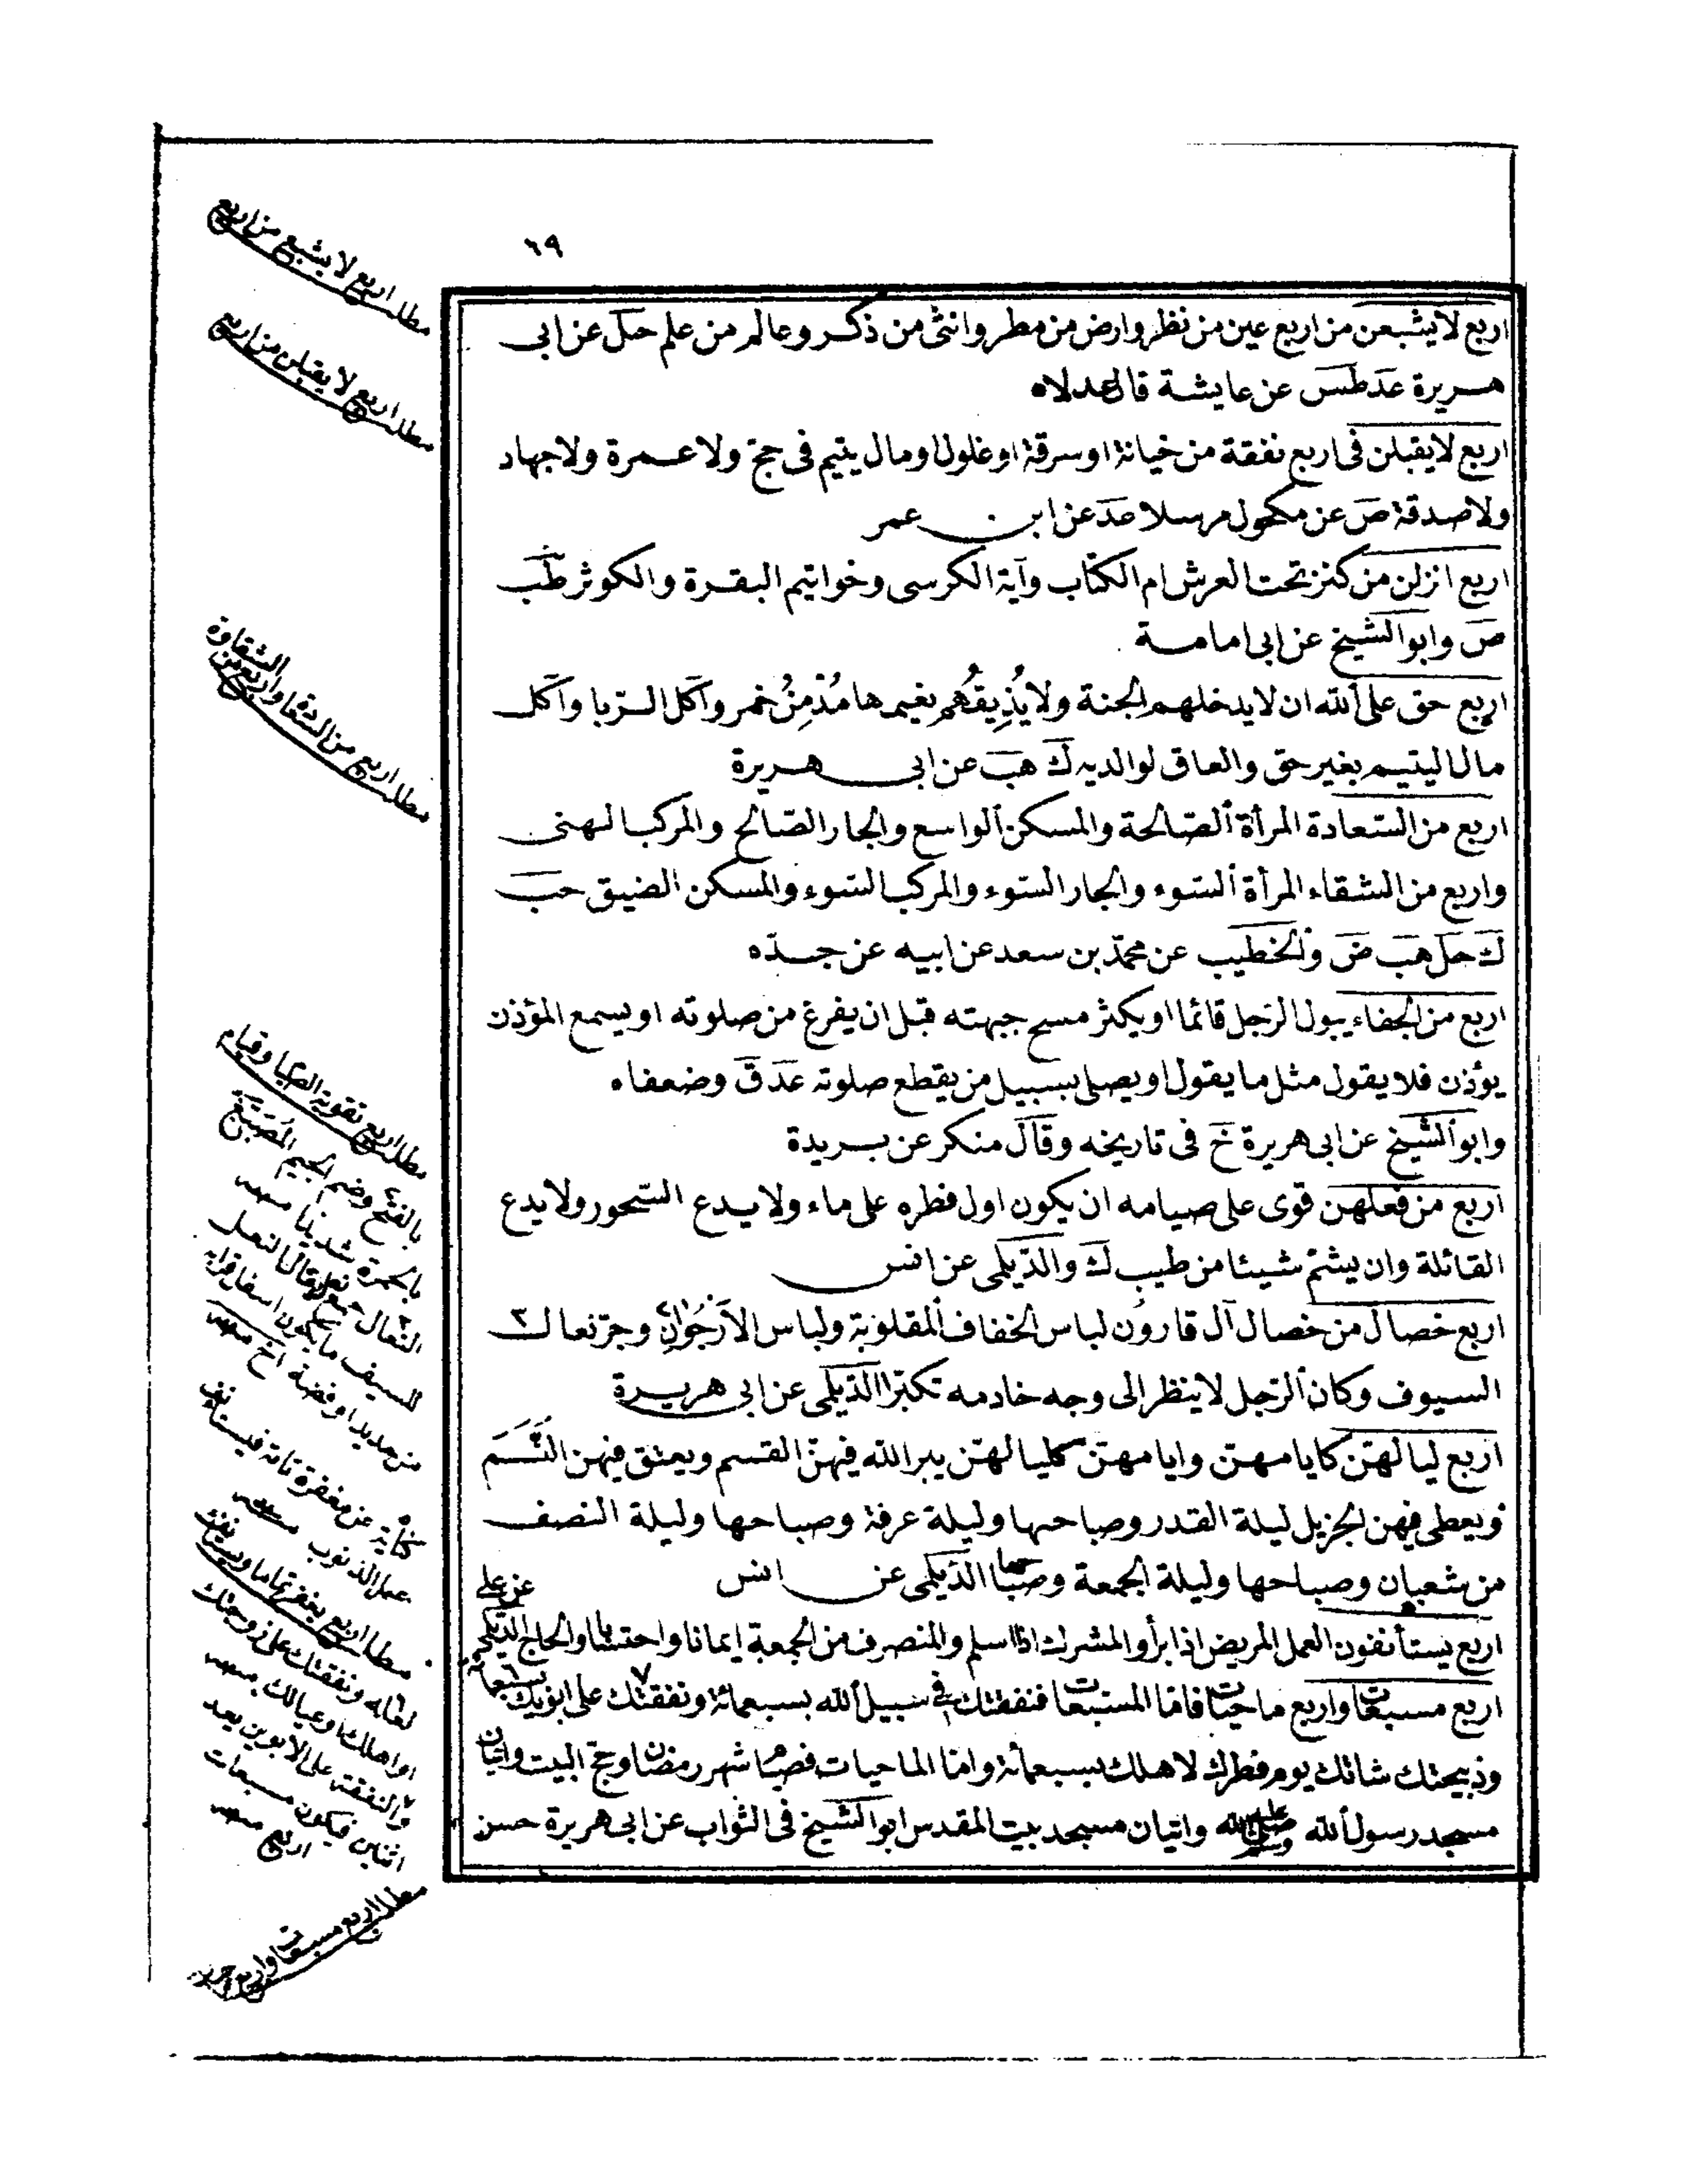 ٦٩
اربع لايشبعن من اربع عين من نظر وارض من مطر وانثى من ذكر وعالم من علم حل عن ابى
هريرة عد طس عن عايشة قال عد لاه
اربع لايقبلن فى اربع نفقة من خيانة او سرقة او غلول او مال يتيم فى حج ولا عمرة ولا جهاد
ولا صدقة ص عن مكحول مرسلا عد عن ابن عمر
اربع انزلن من كنز تحت العرش ام الكتاب وآية الكرسى وخواتيم البقرة والكوثر طب
ض وابو الشيخ عن ابى امامة
اربع حق على الله ان لا يدخلهم الجنة ولا يُذِيقُهم نعيمها مُدْمِنُ خمر وآكل الربا وآكل
مال اليتيم بغير حق والعاق لوالديه ك هب عن ابى هريرة
اربع من السعادة المرأة الصالحة والمسكن الواسع والجار الصالح والمركب الهنى
واربع من الشقاء المرأة السوء والجار السوء والمركب السوء والمسكن الضيق حب
ك حل هب ض والخطيب عن محمد بن سعد عن ابيه عن جده
اربع من الجفاء يبول الرجل قائما او يكثر مسح جبهته قبل ان يفرغ من صلوته او يسمع المؤذن
يؤذن فلا يقول مثل ما يقول او يصلى بسبيل من يقطع صلوته عد ق وضعفاه
وابو الشيخ عن ابى هريرة خ فى تاريخه وقال منكر عن بريدة
اربع من فعلهن قوى على صيامه ان يكون اول فطره على ماء ولا يدع السحور ولا يدع
القائلة وان يشم شيئا من طيب ك والديلمى عن انس
اربع خصال من خصال آل قارون لباس الخفاف المقلوبة ولباس الأَرْجُوانِ وجر نعال
السيوف وكان الرجل لا ينظر الى وجه خادمه تكبرا الديلمى عن ابى هريرة
اربع لياليهن كايامهن وايامهن كلياليهن يبر الله فيهن القسم ويعتق فيهن النسم
ويعطى فيهن الجزيل ليلة القدر وصباحها وليلة عرفة وصباحها وليلة النصف
من شعبان وصباحها وليلة الجمعة وصباحها الديلمى عن انس
اربع يستأنفون العمل المريض اذا برأ والمشرك اذا اسلم والمنصرف من الجمعة ايمانا واحتسابا والحاج الديلمى عن على
اربع مسبعات واربع ماحيات فاما المسبعات فنفقتك فى سبيل الله بسبعمائة ونفقتك على ابويك بسبعمائة
وذبيحتك شاتك يوم فطرك لاهلك بسبعمائة واما الماحيات فصيام شهر رمضان وحج البيت واتيان
مسجد رسول الله صلى الله عليه وسلم واتيان مسجد بيت المقدس ابو الشيخ فى الثواب عن ابى هريرة حسن
مطلب اربع لا يشبع من اربع
مطلب اربع لا يقبلن من اربع
مطلب اربع من السعادة واربع من الشقاوة
مطلب اربع تقوية الصيام وقيام
بالفتح وضم الجيم المُصَبَّغ
بالحمرة شديدا منه
النعال جمع نعل يقال نعل
السيف ما يكون اسفل قرابه
من حديد او فضة اخ منه
كناية عن مغفرة تامة فيستأنف
عمل الذنوب منه
مطلب اربع يغفر تماما ويستأنف
لعاله ونفقتك على زوجتك
او اهلك او عيالك منه
والنفقة على الابوين يعد
اثنين فيكون مسبعات
اربع منه
مطلب اربع مسبعات واربع ماحيات